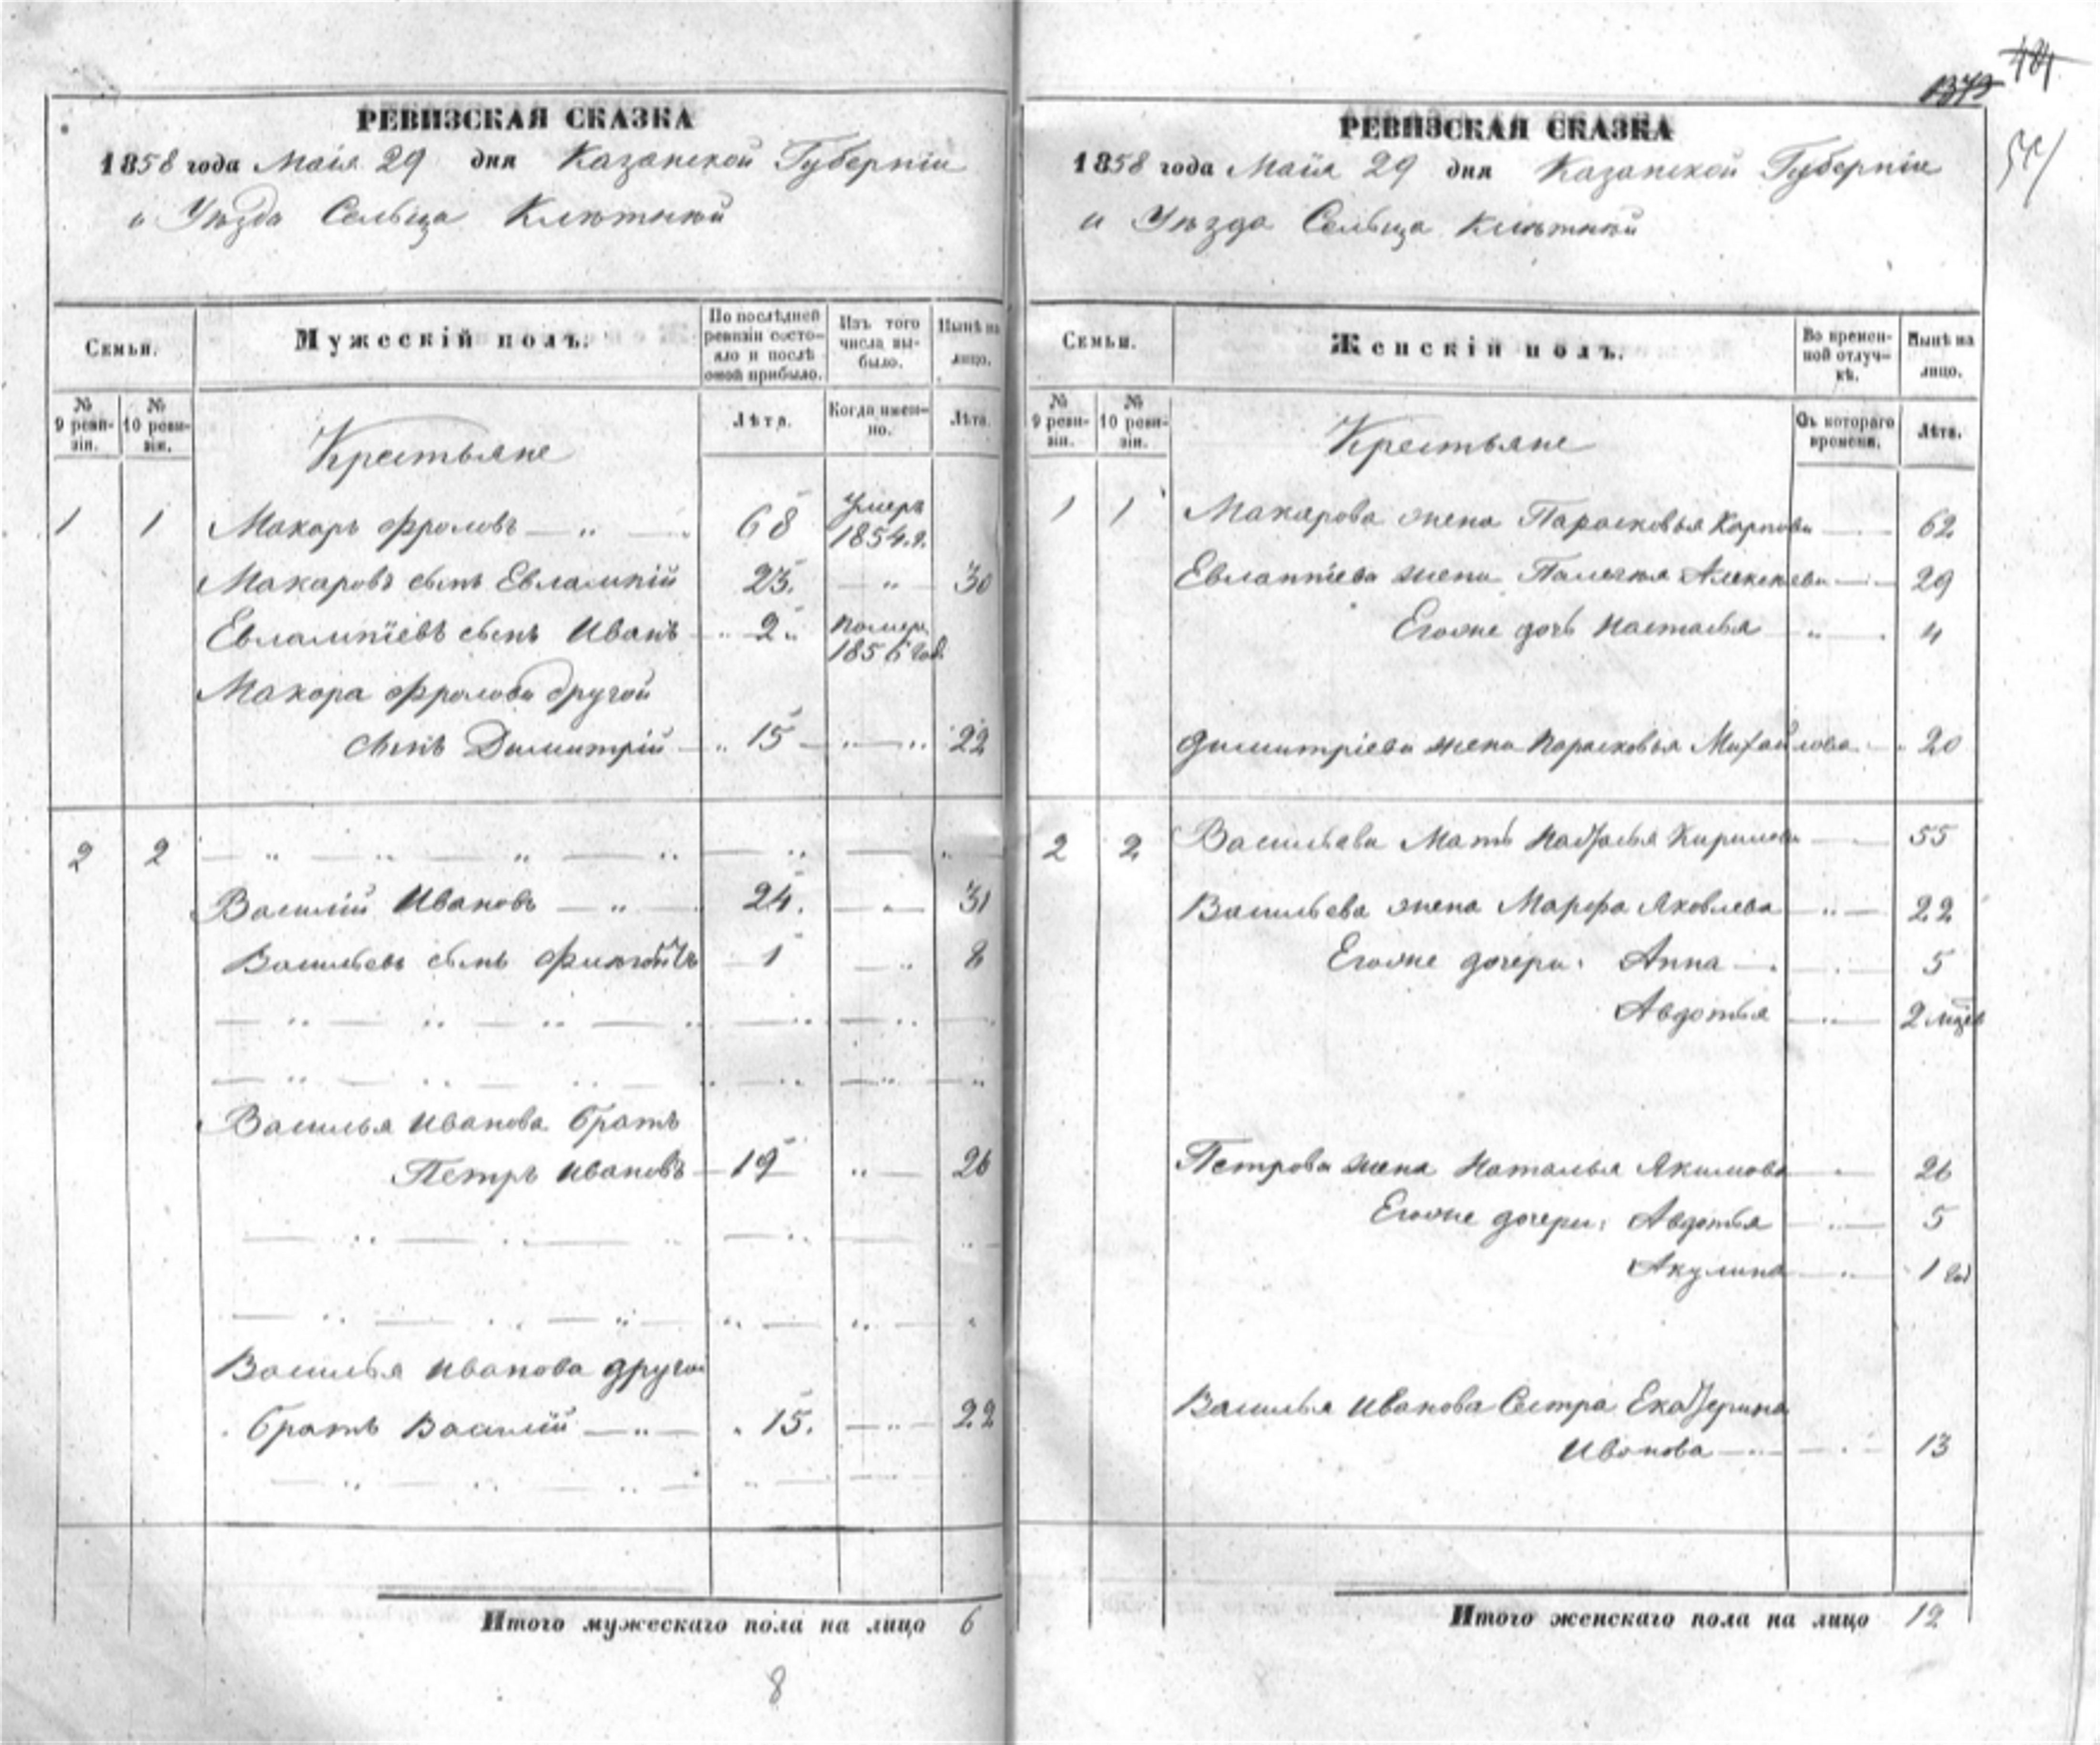 РЕВИЗСКАЯ СКАЗКА
1858 года Маія 29 дня Казанской Губерніи
и Уѣзда Сельца Клѣтней
Семьи.
Мужескій полъ.
По послѣдней ревизіи состояло и послѣ оной прибыло.
Изъ того числа выбыло.
Нынѣ на лицо.
№ 9 ревизіи.
№ 10 ревизіи.
Лѣта.
Когда именно.
Лѣта.
Крестьяне
1 1 Макаръ Фроловъ — „ — 68 Умеръ 1854.г.
Макаровъ сынъ Евлампій 23. — „ — 30
Евлампіевъ сынъ Иванъ 2 помер. 1856 год.
Макара Фролова другой
сынъ Димитрій 15 22
2 2
Василій Ивановъ — „ — 24. 31
Васильевъ сынъ 1 8
Василья Иванова братъ
Петръ Ивановъ 19 26
Василья Иванова другой
братъ Василій — „ — 15. 22
Итого мужескаго пола на лицо 6
8
184
1373
РЕВИЗСКАЯ СКАЗКА
1858 года Маія 29 дня Казанской Губерніи
и Уѣзда Сельца Клѣтней
Семьи.
Женскій полъ.
Во временной отлучкѣ.
Нынѣ на лицо.
№ 9 ревизіи.
№ 10 ревизіи.
Съ котораго времени.
Лѣта.
Крестьяне
1 1 Макарова жена Парасковья Карпова 62
Евлампіева жена Палагея Алексѣева 29
Егоже дочь Насталья 4
Димитріева жена Парасковья Михайлова 20
2 2 Васильева Мать Наталья Кирилова 55
Васильева жена Марфа Яковлева 22
Егоже дочери: Анна 5
Авдотья 2 мѣсец
Петрова жена Наталья Якимова 26
Егоже дочери: Авдотья 5
Акулина 1 год
Василья Иванова Сестра Екатерина
Иванова 13
Итого женскаго пола на лицо 12